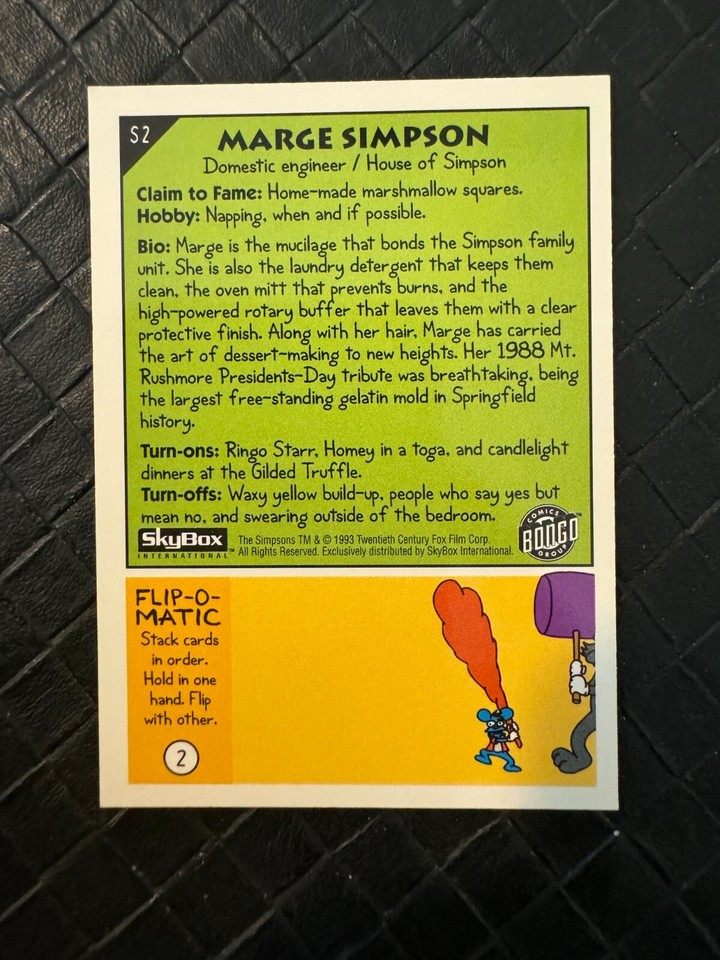 S2
MARGE SIMPSON
Domestic engineer / House of Simpson
Claim to Fame: Home-made marshmallow squares.
Hobby: Napping, when and if possible.
Bio: Marge is the mucilage that bonds the Simpson family
unit. She is also the laundry detergent that keeps them
clean, the oven mitt that prevents burns, and the
high-powered rotary buffer that leaves them with a clear
protective finish. Along with her hair, Marge has carried
the art of dessert-making to new heights. Her 1988 Mt.
Rushmore Presidents-Day tribute was breathtaking, being
the largest free-standing gelatin mold in Springfield
history.
Turn-ons: Ringo Starr, Homey in a toga, and candlelight
dinners at the Gilded Truffle.
Turn-offs: Waxy yellow build-up, people who say yes but
mean no, and swearing outside of the bedroom.
SkyBox
INTERNATIONAL™
The Simpsons TM & © 1993 Twentieth Century Fox Film Corp.
All Rights Reserved. Exclusively distributed by SkyBox International.
COMICS
BONGO™
GROUP
FLIP-O-
MATIC
Stack cards
in order.
Hold in one
hand. Flip
with other.
2